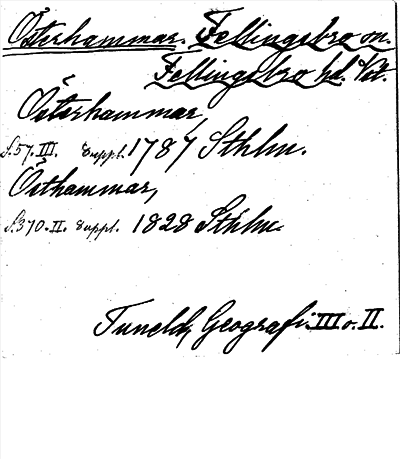 Österhammar. Fellingsbro sn.
Fellingsbro hd. Vstm.
Österhammar,
S.57. III. Suppl. 1787 Sthlm.
Östhammar,
S.370. II. Suppl. 1828 Sthlm.
Tuneld, Geografi. III o. II.